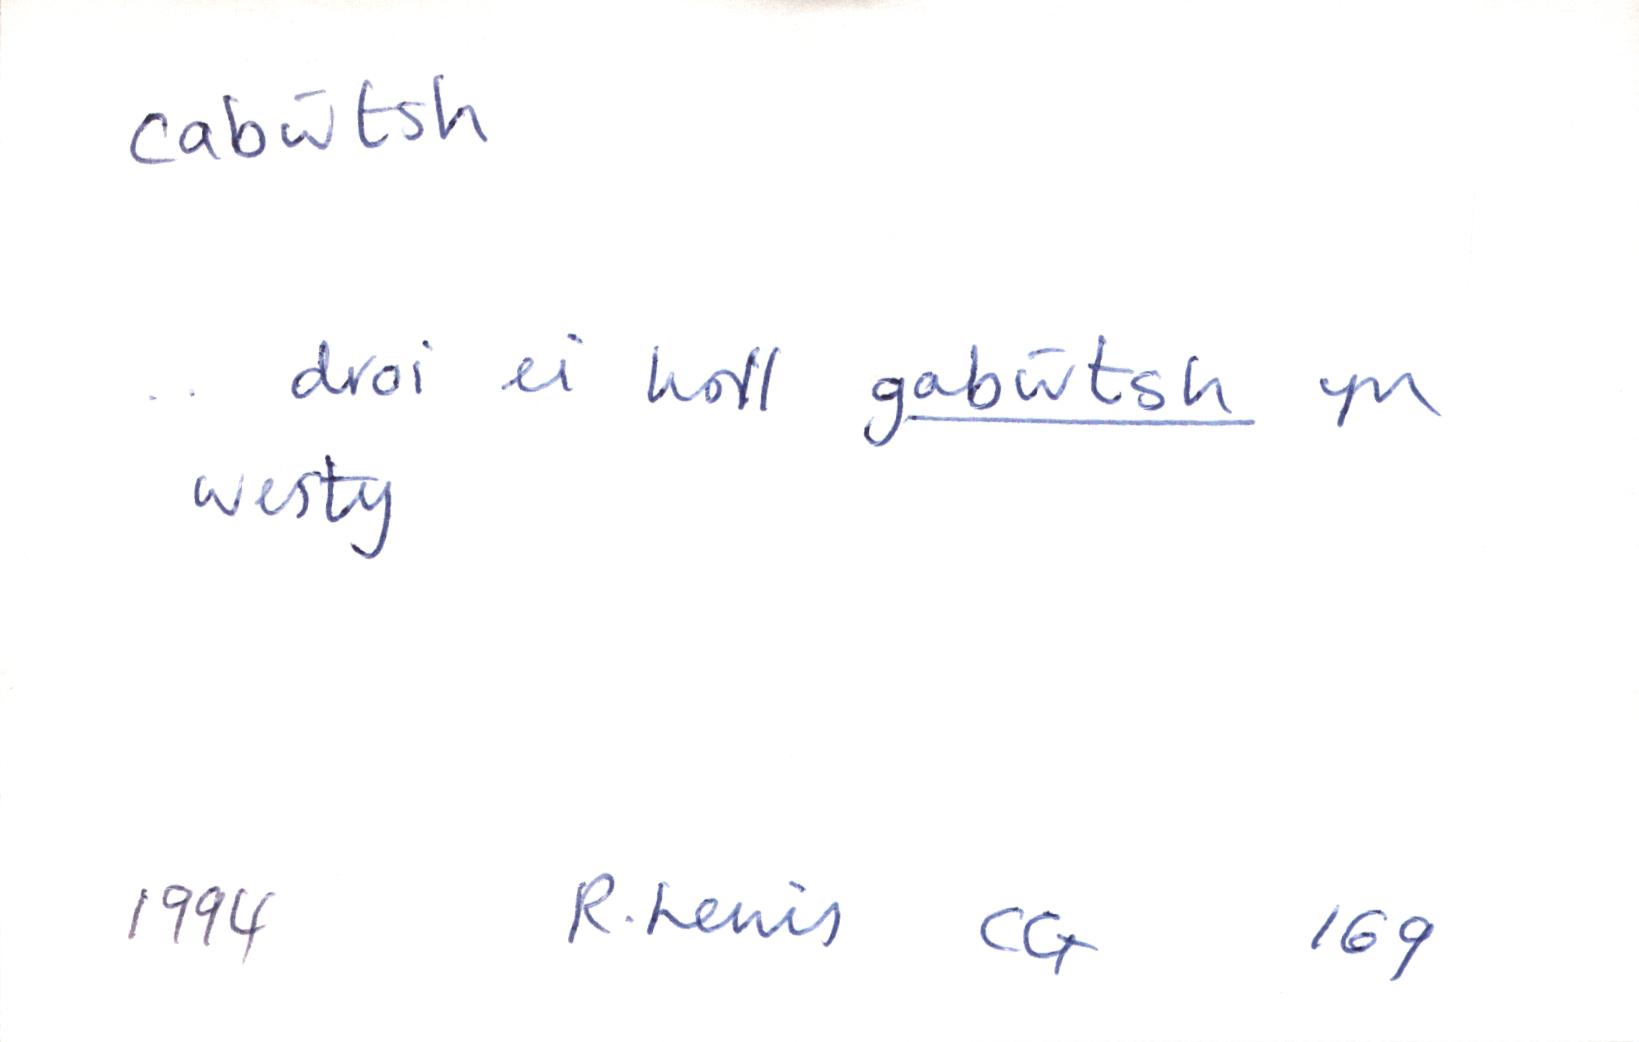 cabŵtsh
.. droi ei holl gabŵtsh yn
westy
1994 R. Lewis CG 169